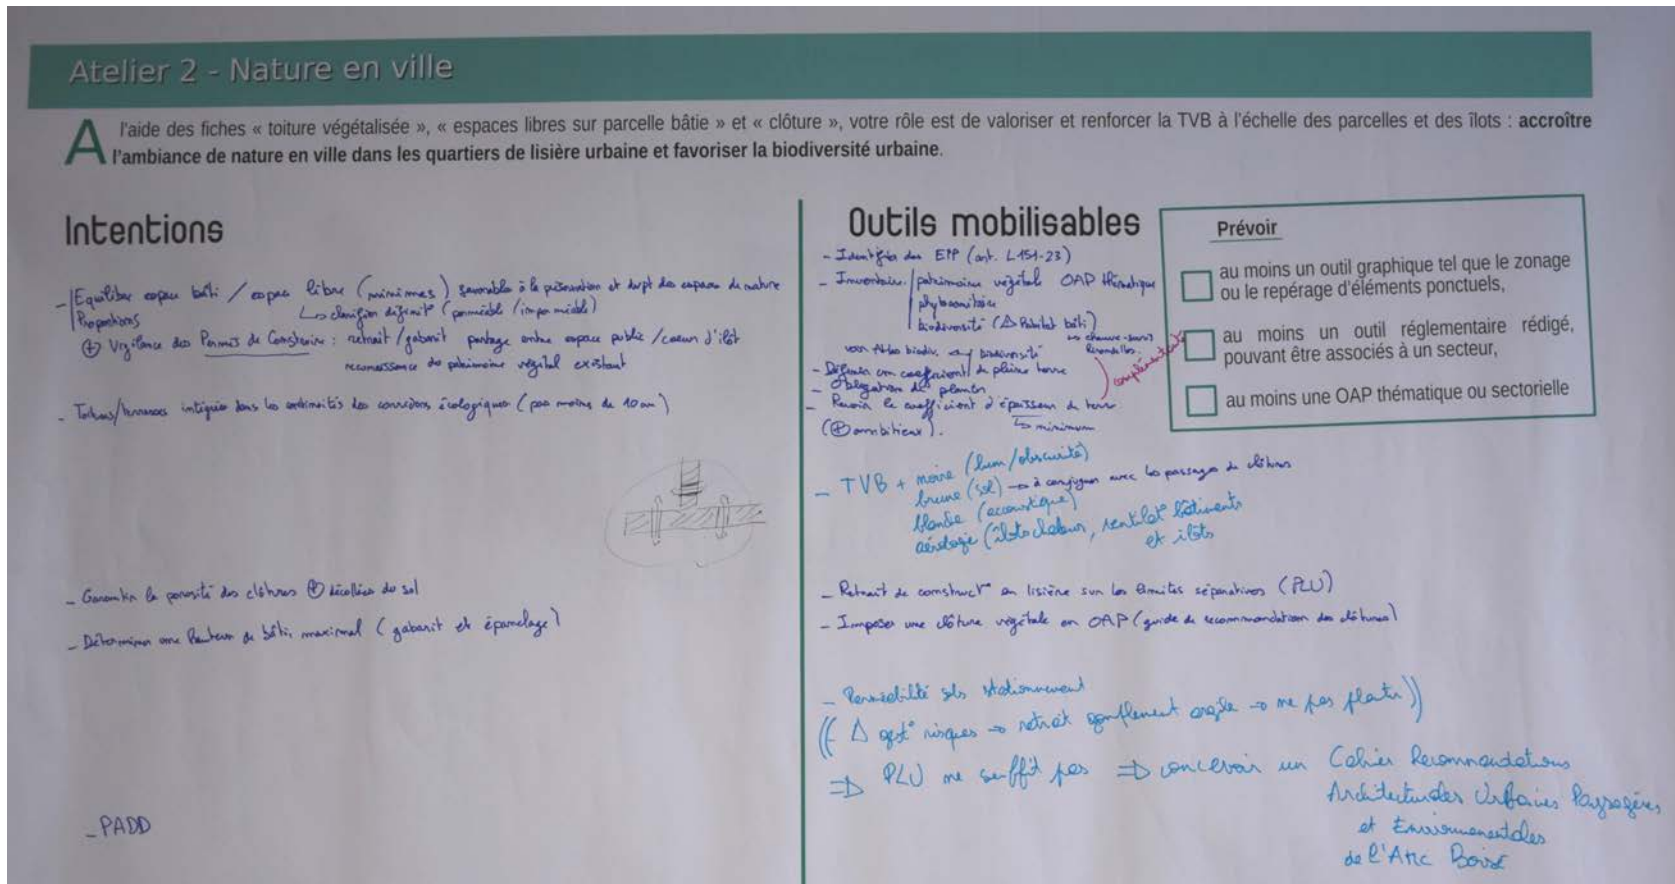 Atelier 2 - Nature en ville
A l'aide des fiches « toiture végétalisée », « espaces libres sur parcelle bâtie » et « clôture », votre rôle est de valoriser et renforcer la TVB à l'échelle des parcelles et des îlots : accroître
l'ambiance de nature en ville dans les quartiers de lisière urbaine et favoriser la biodiversité urbaine.
Intentions
- Equilibre espace bâti / espace libre (minimes) favorable à la préservation et dvpt des espaces de nature
Proportions
↳ clarifier définit° (perméable / imperméable)
⊕ Vigilance des Permis de Construire : retrait / gabarit partage entre espace public / cœur d'îlot
reconnaissance du patrimoine végétal existant
- Toitures/terrasses intégrées dans les continuités des corridors écologiques (pas moins de 10 cm)
- Garantir la porosité des clôtures ⊕ décollées du sol
- Déterminer une hauteur de bâti maximal (gabarit et épannelage)
- PADD
Outils mobilisables
- Identifier des EPP (art. L 151-23)
- Inventaire / patrimoine végétal OAP thématique
phytosanitaire
biodiversité (△ habitat bâti)
↳ chauve-souris
hirondelles
voir Atlas biodiv. biodiversité
- Définir un coefficient de pleine terre
- Obligation de planter
- Revoir le coefficient d'épaisseur de terre
↳ minimum
(⊕ ambitieux).
complémentaire
- TVB + noire (lum/obscurité)
brune (sol) → à conjuguer avec les passages de clôtures
blanche (acoustique)
aérologie (îlots chaleur, ventilat° bâtiments
et îlots
- Retrait de construct° en lisière sur les limites séparatives (PLU)
- Imposer une clôture végétale en OAP (guide de recommandation des clôtures)
- Perméabilité sols stationnement
((△ gest° risques → retrait gonflement argile → ne pas planter))
⇒ PLU ne suffit pas ⇒ concevoir un Cahier Recommandations
Architecturales Urbaines Paysagères
et Environnementales
de l'Arc Boisé
Prévoir
au moins un outil graphique tel que le zonage
ou le repérage d'éléments ponctuels,
au moins un outil réglementaire rédigé,
pouvant être associés à un secteur,
au moins une OAP thématique ou sectorielle